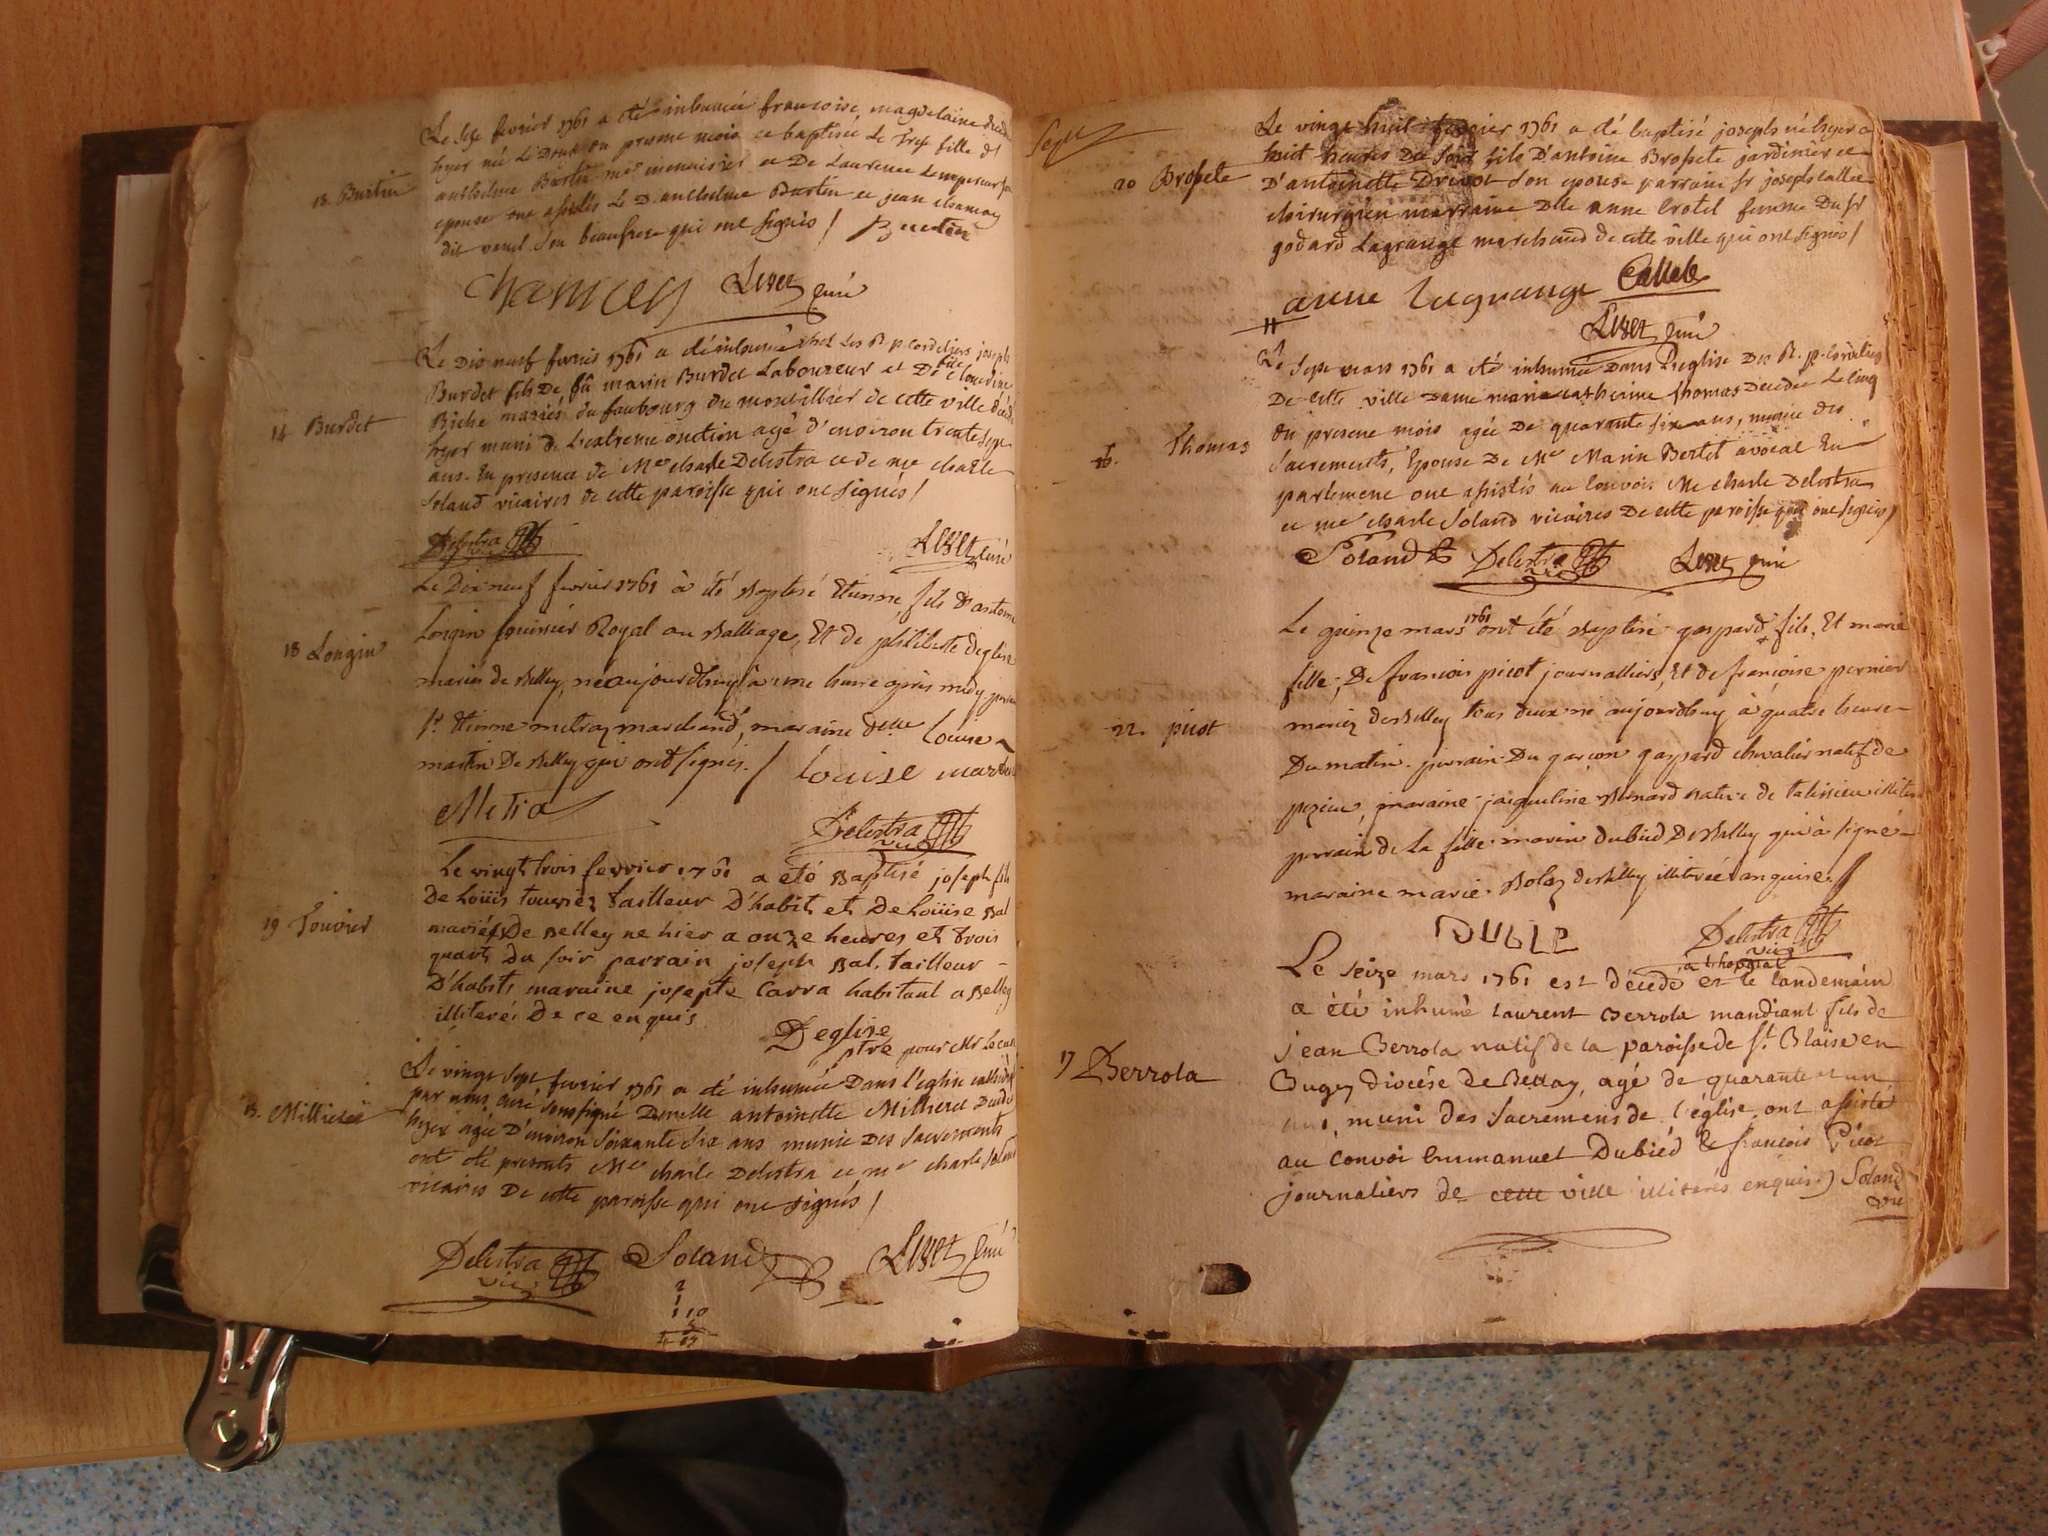 13. Burtin
Le fevrier 1761 a été inhumée francoise magdelaine
hyer née Le Douze du present mois et baptisée Le fille d'
anthelme Burtin me menuisier et De Laurence
epouse ont assistés Le D. anthelme Burtin et jean chamcey
dit son beaufrere qui ont signés / Burtin
Chamcey Livet curé
14 Burdet
Le Dix neuf fevrier 1761 a été inhumé chez Les R. p. cordeliers joseph
Burdet fils De fû marin Burdet Laboureur et De claudine
Riche mariés du faubourg du de cette ville
hyer muni de L'extreme onction agé d'environ trente sept
ans. En presence de Me charle Delestra et de me charle
Soland vicaires de cette paroisse qui ont signés /
Delestra Livet curé
18 Longin
Le Dix neuf fevrier 1761 à été Baptisé Etienne, fils d'antoine
Longin huissier Royal au Balliage, Et de philiberte deglise
mariés de Belley, né aujourdhuy à une heure après midy
sr. Etienne metraz marchand, maraine delle Louise
martin De Belley qui ont signés. / Louise martin
Metra
Delestra vic
19 Touvier
Le vingt trois fevrier 1761 a eté Baptisé joseph fils
De Loüis touvier tailleur D'habits et De Loüise Bal
mariés De Belley ne hier a onze heures et trois
quarts du soir parrain joseph Bal. tailleur
D'habits maraine josepte Carra habitant a Belley
illiterés De ce enquis
Deglise
ptre pour Mr Le curé
15. Millieret
Le vingt sept fevrier 1761 a été inhumée Dans l'eglise cathedrale
par nous curé soussigné Demelle antoinette Millieret
hyer agée D'environ soixante dix ans munie Des sacrements
ont été presents Me charle Delestra et me charle Soland
vicaires De cette paroisse qui ont signés /
Delestra vic Soland Livet curé
Sept
20 Brossete
Le vingt huit fevrier 1761 a été baptisé joseph né hyer a
huit heures du soir fils D'antoine Brossete jardinier et
D'antoinette son epouse parrain sr joseph callet
chirurgien marraine Dlle anne Crotel femme Du sr
godard Lagrange marchand de cette ville qui ont signés /
anne lagrange Callet
Livet curé
16. Thomas
Le Sept mars 1761 a été inhumée Dans l'eglise Des R. p. cordeliers
De cette ville Dame marie catherine thomas Decedée Le cinq
Du present mois agée De quarante six ans, munie des
sacrements, Epouse De Me Marin Bertet avocat En
parlement ont assistés au convois Me charle Delestra
et me charle Soland vicaires De cette paroisse qui ont signés /
Soland Delestra Livet curé
22. picot
Le quinze mars 1761 ont été Baptisé gaspard fils, Et marie
fille, De francois picot journalliers, Et de francoise pernier
mariez de Belley tous deux né aujourdhuy à quatre heure
Du matin. parrain Du garçon gaspard chevalier natif de
maraine jacqueline Benard native de talissieu
parrain de La fille marin dubied De Belley qui à signé
maraine marie de Belley illiterée enquise. /
DUBIE
Delestra vic
17 Berrola
a l'hopital
Le seize mars 1761 est décedé et le landemain
a été inhumé Laurent Berrola mandiant fils de
jean Berrola natif de la paroisse de St. Blaise en
Bugey diocése de Bellay, agé de quarante et un
ans, muni des sacremens de l'église ont assisté
au convoi Emmanuel Dubiéd & francois Picot
journaliers de cette ville illiterés enquis) Soland
vic